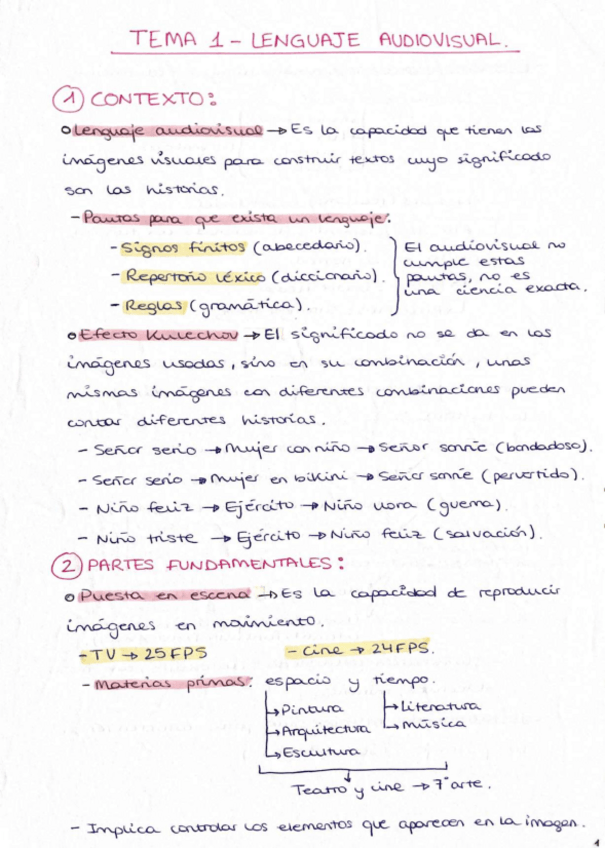 TEMA 1 - LENGUAJE AUDIOVISUAL.
① CONTEXTO:
o Lenguaje audiovisual → Es la capacidad que tienen las
imágenes visuales para construir textos cuyo significado
son las historias.
- Pautas para que exista un lenguaje:
- Signos finitos (abecedario).
- Repertorio léxico (diccionario).
- Reglas (gramática).
El audiovisual no
cumple estas
pautas, no es
una ciencia exacta.
o Efecto Kulechov → El significado no se da en las
imágenes usadas, sino en su combinación, unas
mismas imágenes con diferentes combinaciones pueden
contar diferentes historias.
- Señor serio → Mujer con niño → Señor sonríe (bondadoso).
- Señor serio → Mujer en bikini → Señor sonríe (pervertido).
- Niño feliz → Ejército → Niño llora (guerra).
- Niño triste → Ejército → Niño feliz (salvación).
② PARTES FUNDAMENTALES:
o Puesta en escena → Es la capacidad de reproducir
imágenes en movimiento.
- TV → 25 FPS - Cine → 24 FPS.
- Materias primas: espacio y tiempo.
↳ Pintura ↳ Literatura
↳ Arquitectura ↳ Música
↳ Escultura
Teatro y cine → 7º arte.
- Implica controlar los elementos que aparecen en la imagen.
1